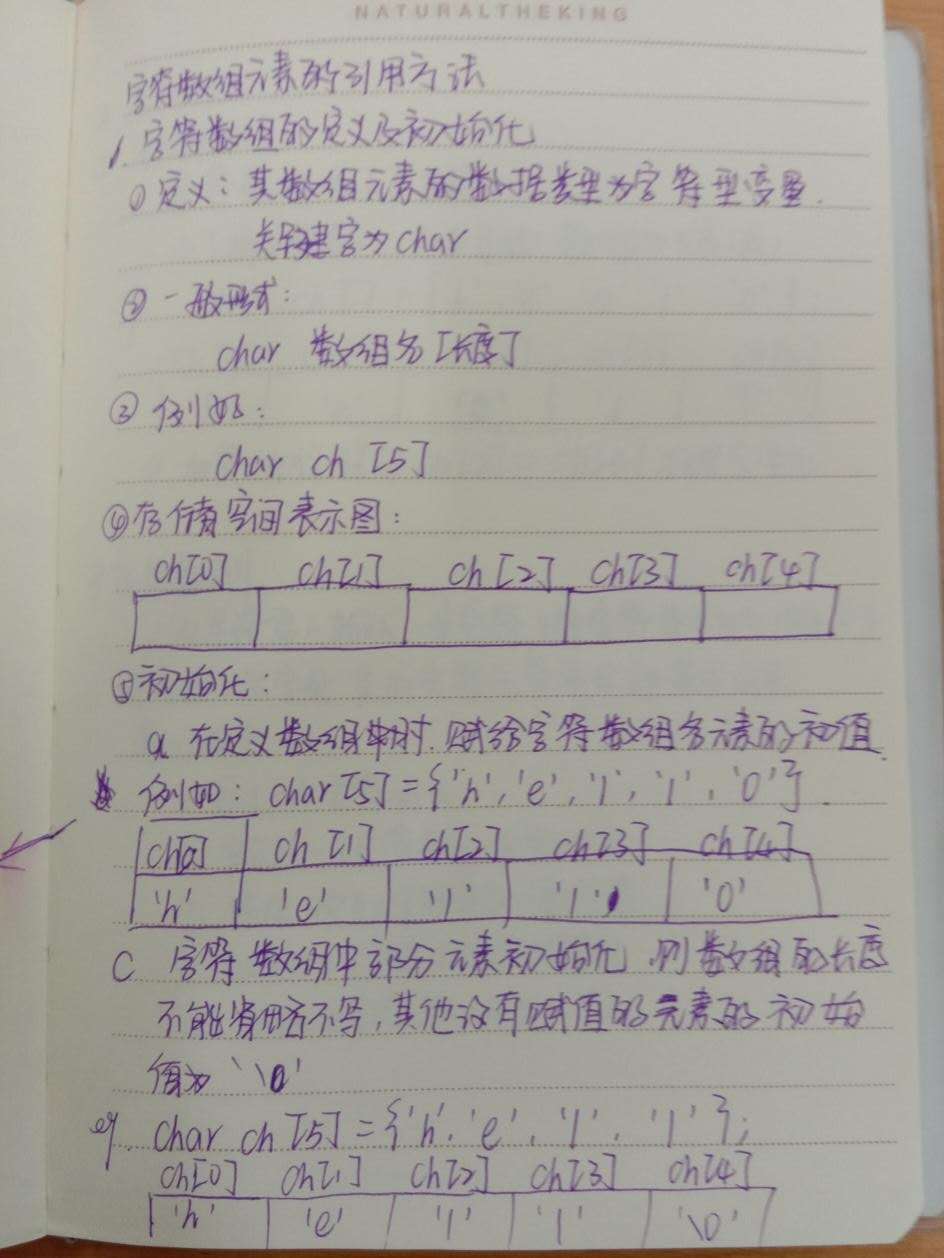 NATURALTHEKING
字符数组元素的引用方法
1. 字符数组的定义及初始化
① 定义：其数组元素的数据类型为字符型变量.
关键字为 char
② 一般形式：
char 数组名 [长度]
③ 例如：
char ch [5]
④ 存储空间表示图：
ch[0] ch[1] ch[2] ch[3] ch[4]
⑤ 初始化：
a 在定义数组时.赋给字符数组各元素的初值.
例如： char[5]={'h','e','l','l','o'}.
ch[0] ch[1] ch[2] ch[3] ch[4]
'h' 'e' 'l' 'l' 'o'
c 字符数组中部分元素初始化,则数组的长度
不能省略不写,其他没有赋值的元素的初始
值为 '\0'
eg. char ch[5]={'h','e','l','l'};
ch[0] ch[1] ch[2] ch[3] ch[4]
'h' 'e' 'l' 'l' '\0'